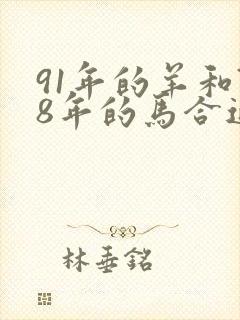 91年的羊和
8年的馬合
林垂銘